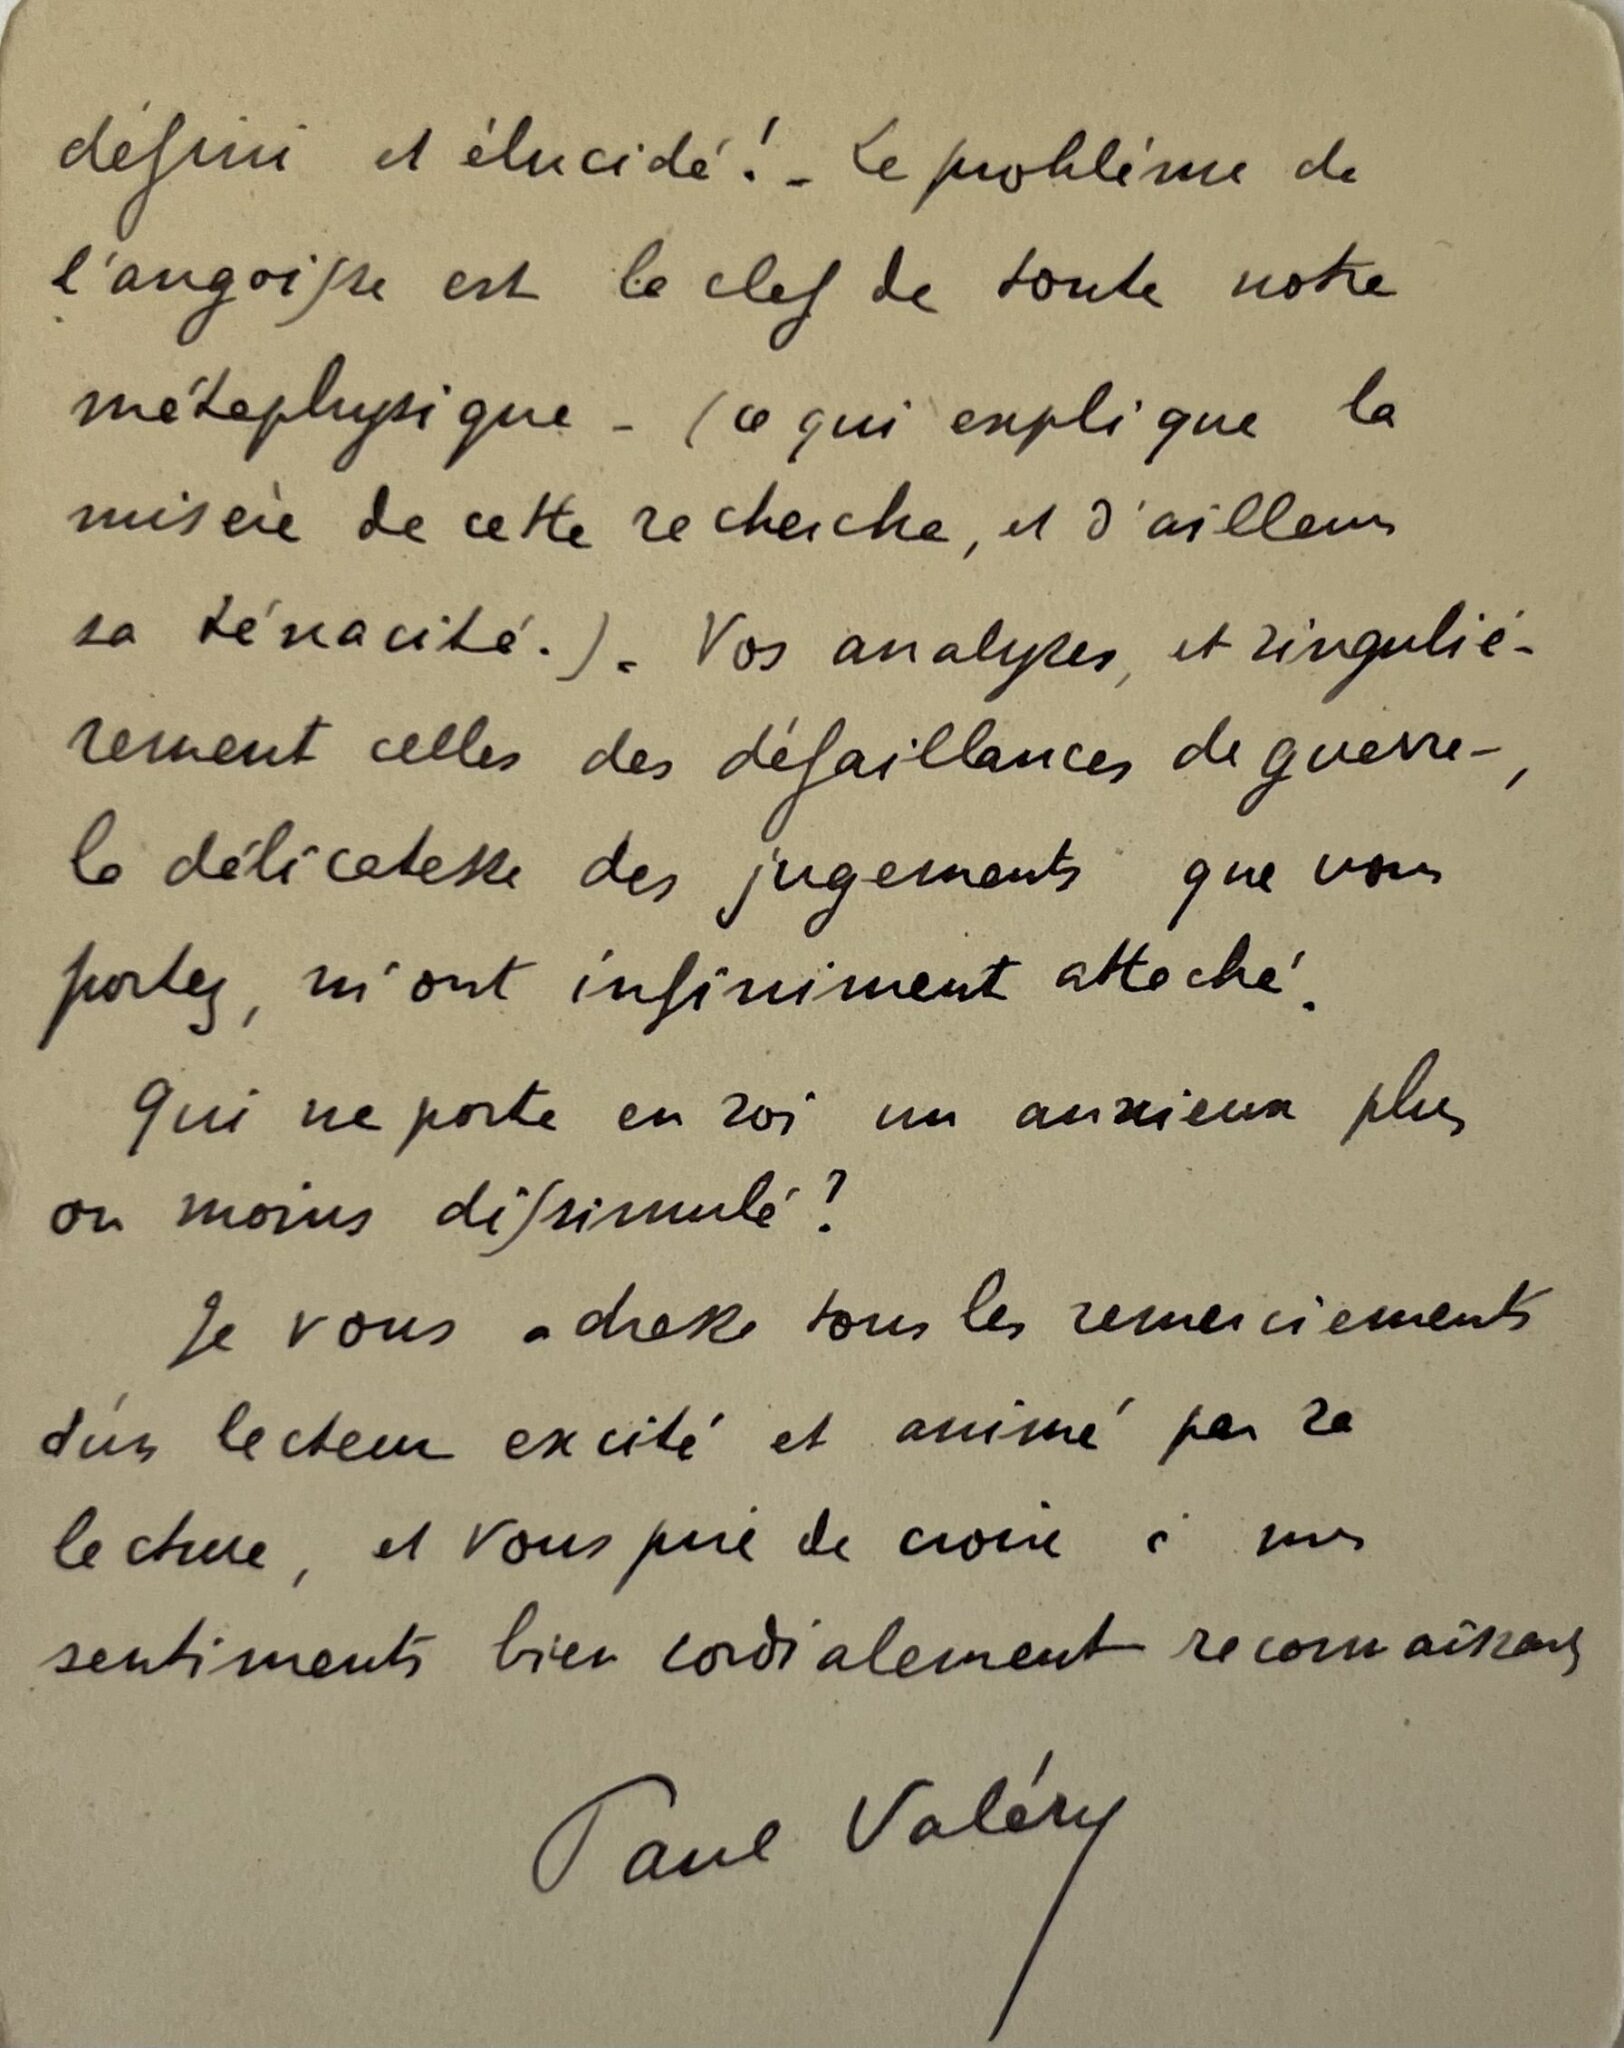 défini et élucidé! - Le problème de
l'angoisse est la clef de toute notre
métaphysique - (ce qui explique la
misère de cette recherche, et d'ailleurs
sa ténacité.). Vos analyses, et singuliè-
rement celles des défaillances de guerre -,
la délicatesse des jugements que vous
portez, m'ont infiniment attaché.
Qui ne porte en soi un anxieux plus
ou moins dissimulé?
Je vous adresse tous les remerciements
d'un lecteur excité et animé par sa
lecture, et vous prie de croire à mes
sentiments bien cordialement reconnaissants
Paul Valéry